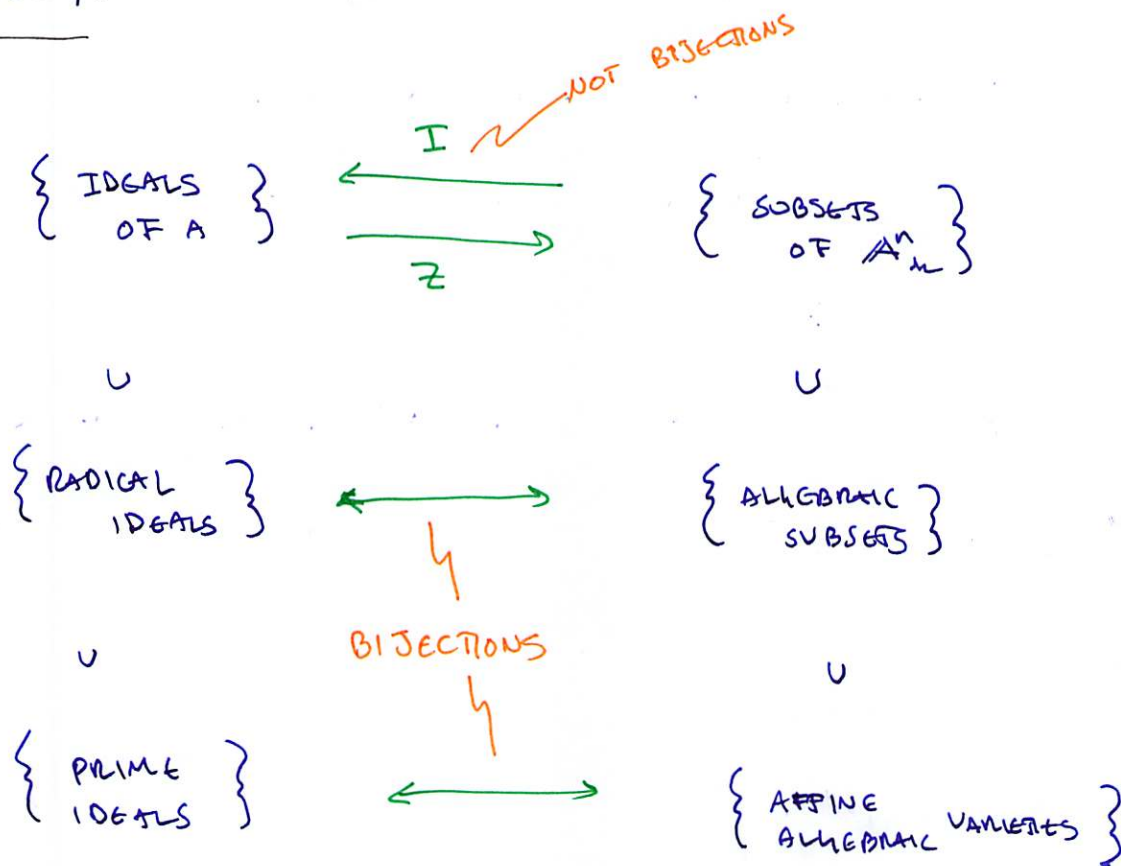 NOT BIJECTIONS
I
{ IDEALS OF A }
Z
{ SUBSETS OF 𝔸ⁿₖ }
∪ ∪
{ RADICAL IDEALS }
{ ALGEBRAIC SUBSETS }
BIJECTIONS
∪ ∪
{ PRIME IDEALS }
{ AFFINE ALGEBRAIC VARIETES }